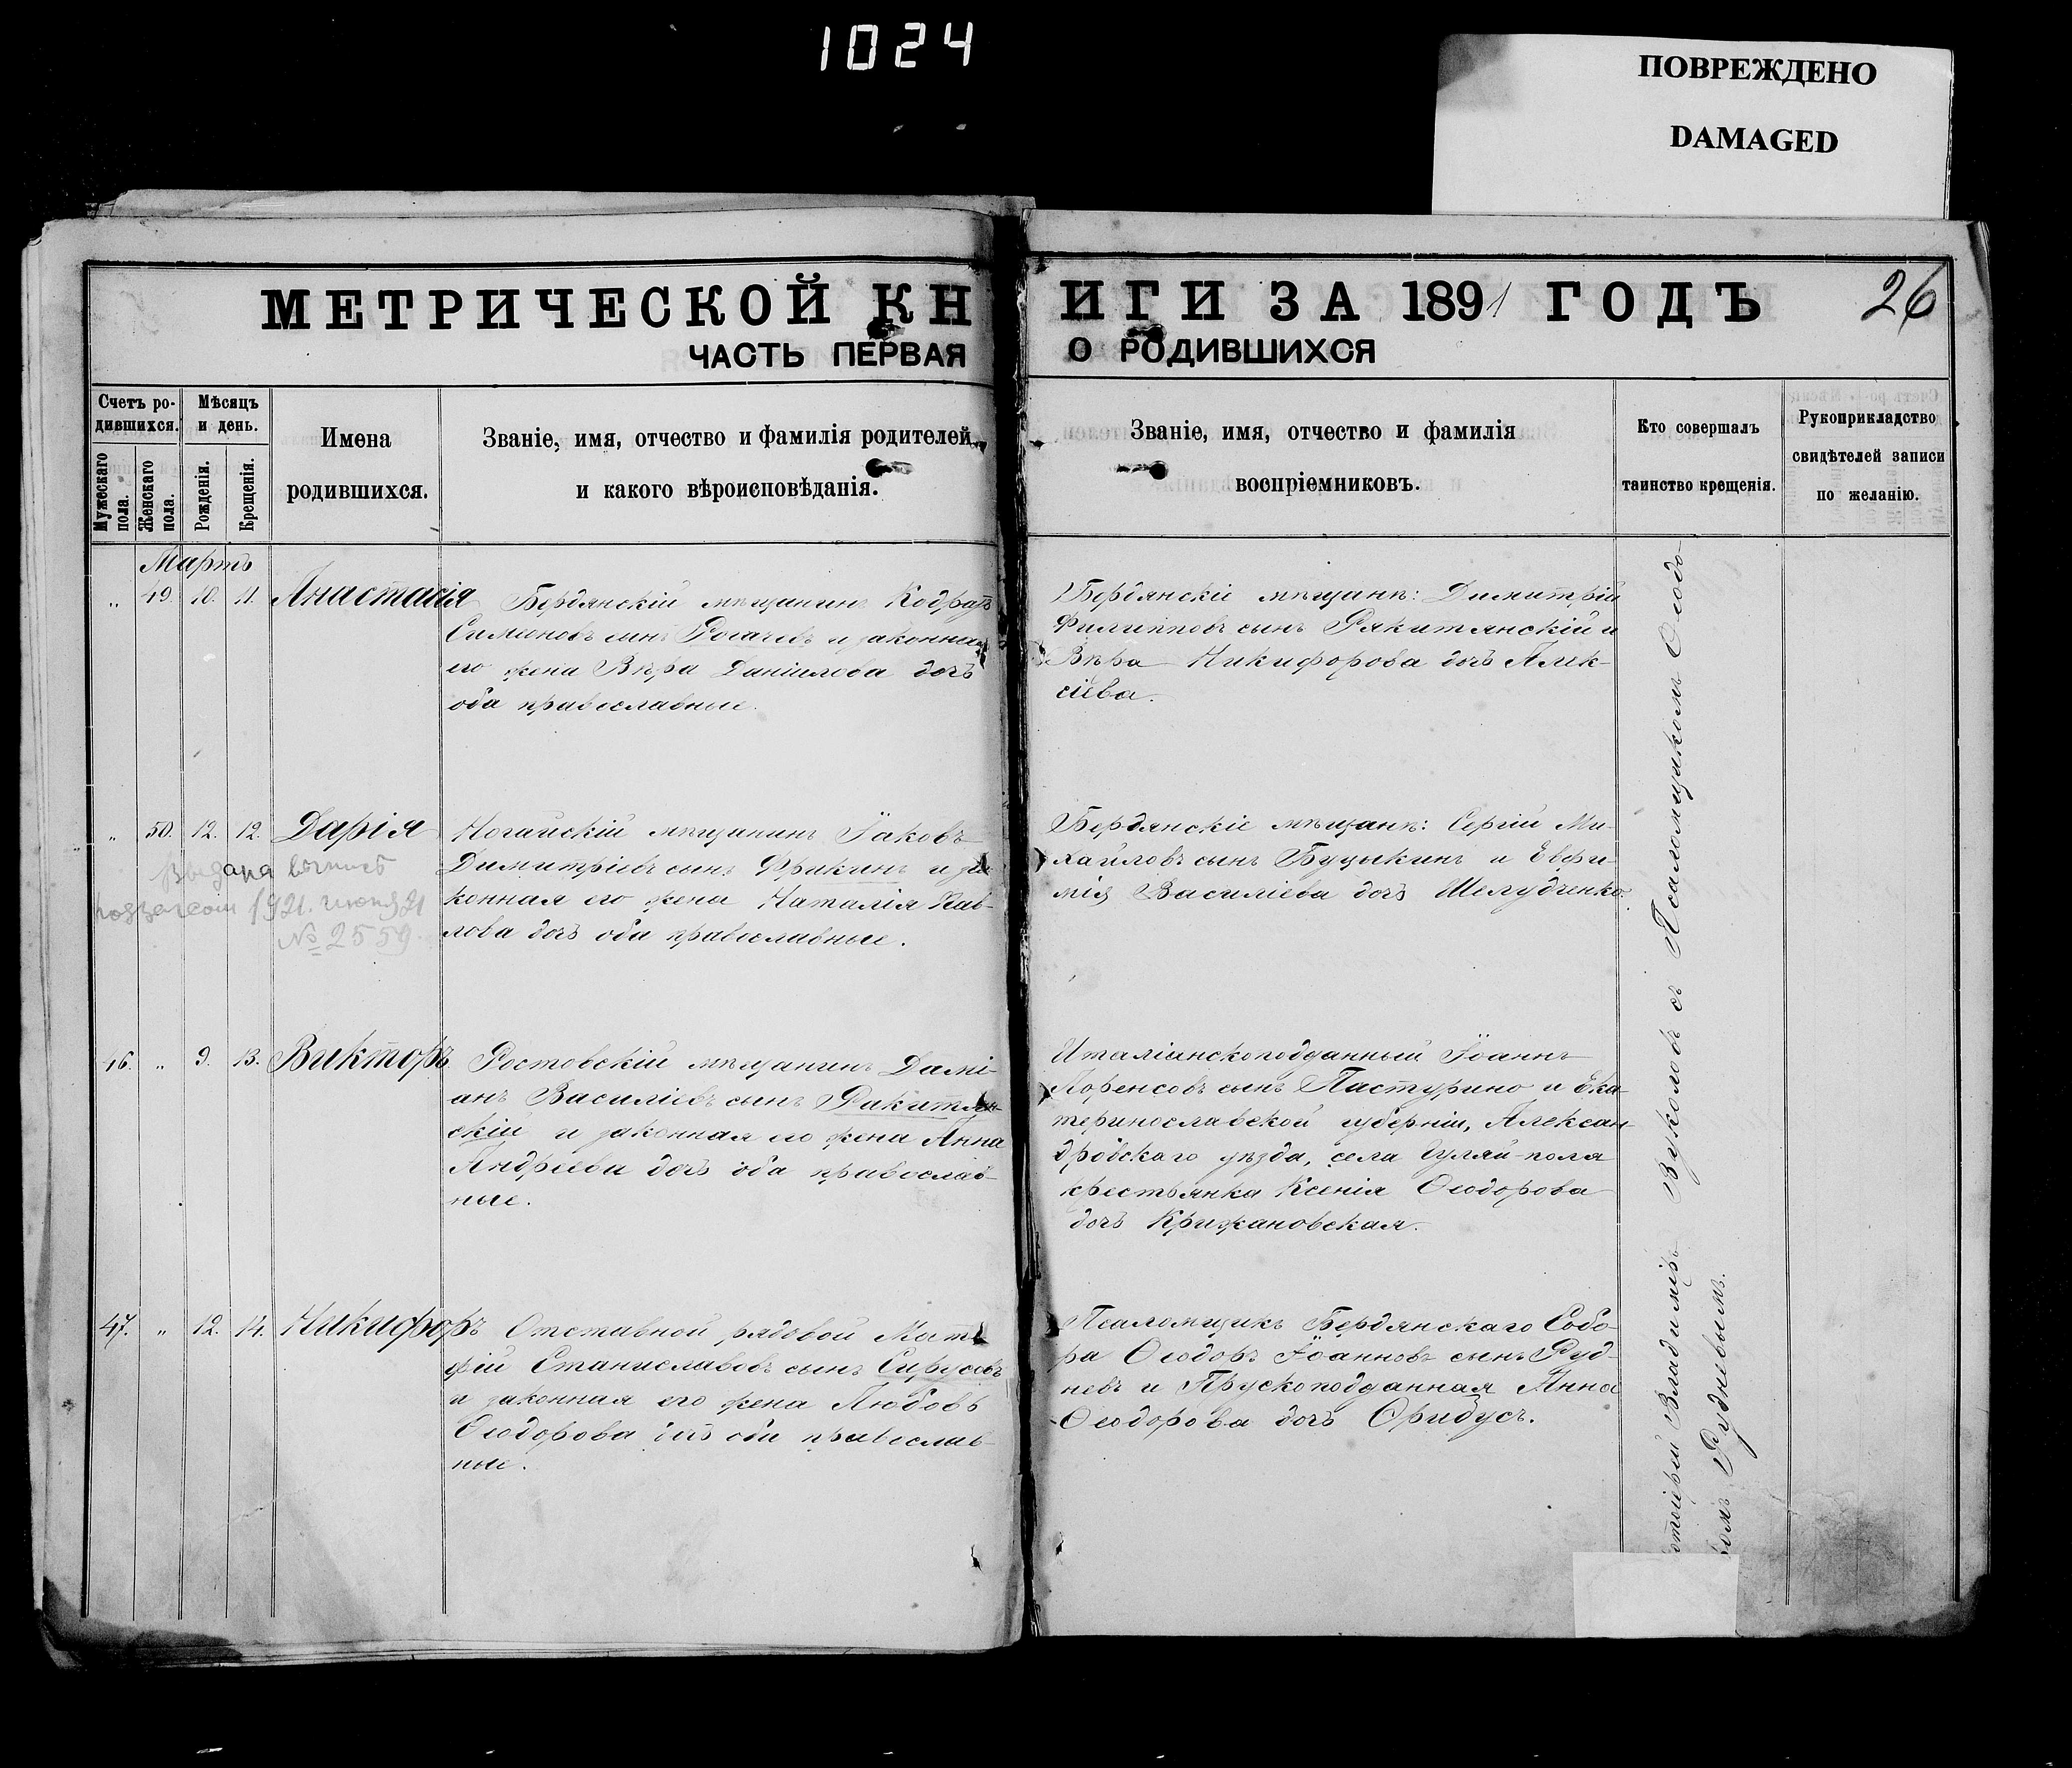 1024
ПОВРЕЖДЕНО
DAMAGED
МЕТРИЧЕСКОЙ КН
ЧАСТЬ ПЕРВАЯ
ИГИ ЗА 1891 ГОДЪ
26
О РОДИВШИХСЯ
Счетъ ро-
дившихся.
Мужескаго
пола.
Женскаго
пола.
Мѣсяцъ
и день.
Рожденія.
Крещенія.
Имена
родившихся.
Званіе, имя, отчество и фамилія родителей,
и какого вѣроисповѣданія.
Званіе, имя, отчество и фамилія
воспріемниковъ.
Кто совершалъ
таинство крещенія.
Рукоприкладство
свидѣтелей записи
по желанію.
Мартъ
„ 49. 10. 11. Анастасія
Бердянскій мѣщанинъ Кодратъ
Симеоновъ сынъ Рогачевъ и законная
его жена Вѣра Даніилова дочь
оба православные.
Бердянскіе мѣщане: Димитрій
Филипповъ сынъ Ракитянскій и
Вѣра Никифорова дочь Алек-
сіева.
„ 50. 12. 12. Дарія
Выдана
1921. июня 21
№ 2559
Ногайскій мѣщанинъ Іаковъ
Димитріевъ сынъ Фракинъ и за-
конная его жена Наталія Пав-
лова дочь оба православные.
Бердянскіе мѣщане: Сергій Ми-
хайловъ сынъ Буцыкинъ и Евфи-
мія Василіева дочь Шелудченко.
46. „ 9. 13. Викторъ
Ростовскій мѣщанинъ Дамі-
анъ Василіевъ сынъ Ракитян-
скій и законная его жена Анна
Андреева дочь оба православ-
ные.
Италіанскоподданный Іоаннъ
Лоренсовъ сынъ Пастурино и Ека-
теринославской губерніи, Алексан-
дровскаго уѣзда, села Гуляй-поля
крестьянка Ксенія Ѳеодорова
дочь Крижановская.
47. „ 12. 14. Никифоръ
Отставной рядовой Мат-
фій Станиславовъ сынъ Сирусовъ
и законная его жена Любовь
Ѳеодорова дочь оба православ-
ные.
Псаломщикъ Бердянскаго Собо-
ра Ѳеодоръ Іоанновъ сынъ Руд-
невъ и Прускоподданная Анна
Ѳеодорова дочь Фридусъ.
Владиміръ Вуколовъ съ Псаломщикомъ Ѳеодо-
Рудневымъ.